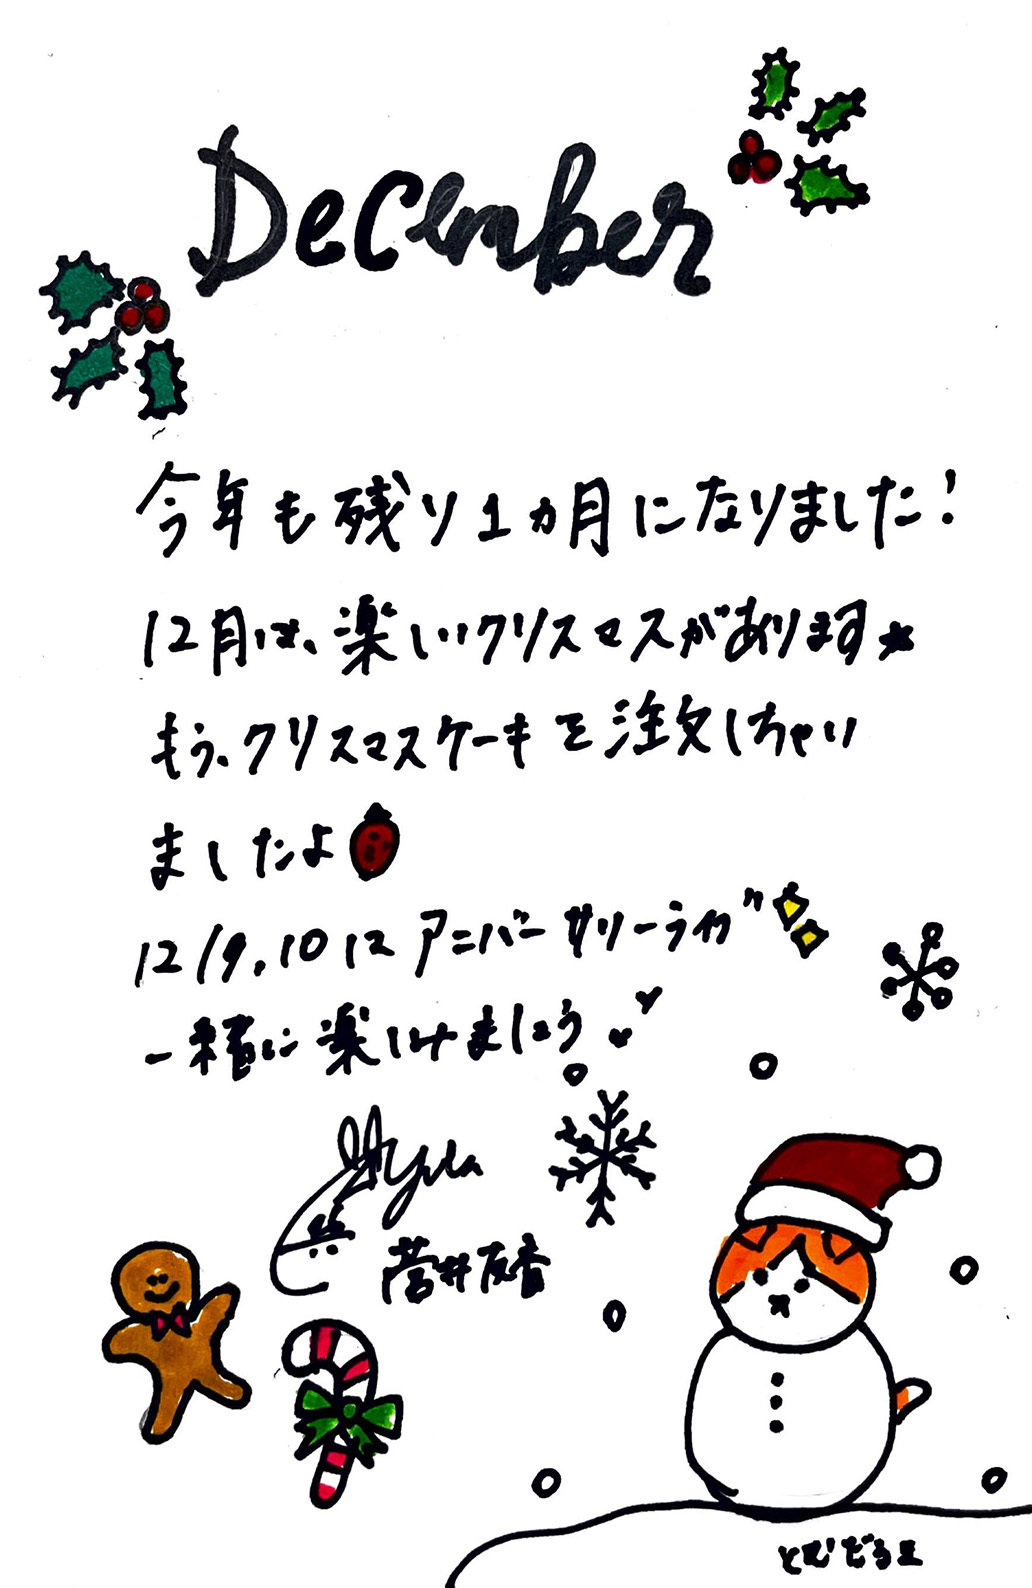 December
今年も残り1ヵ月になりました!
12月は、楽しいクリスマスがあります★
もう、クリスマスケーキを注文しちゃい
ましたよ
12/9,10にアニバーサリーライブ
一緒に楽しみましょう
Yuka
菅井友香
とむだるま